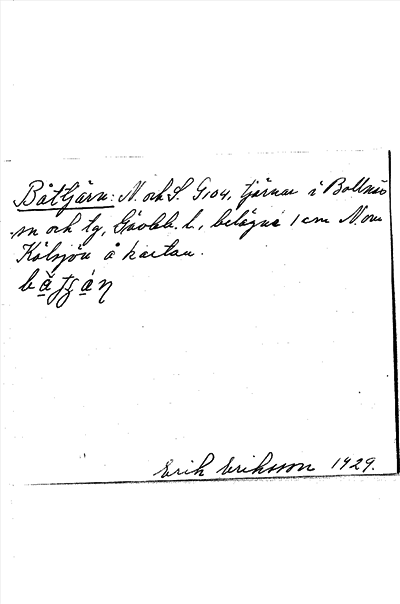 Båttjärn: N. och S. G104, tjärnar i Bollnäs
sn och tg, Gävleb. l., belägna 1 cm N om
Kölsjön å kartan.
Erik Eriksson 1929.